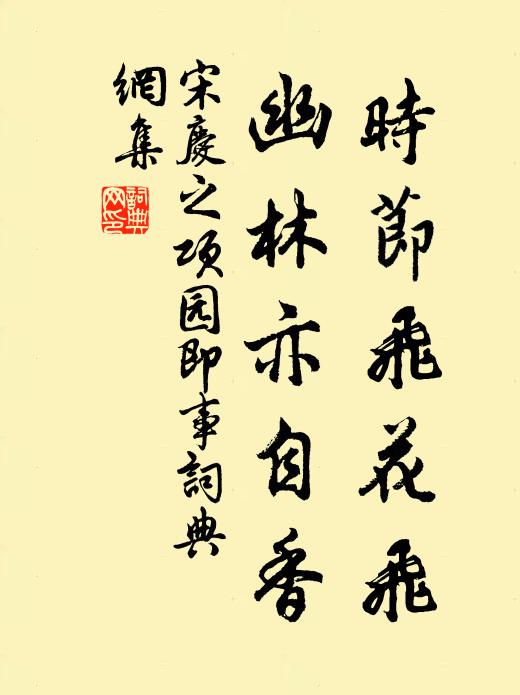 時節飛花飛
幽林亦自香
宋慶之项园即事詞典
網集
詞典網印